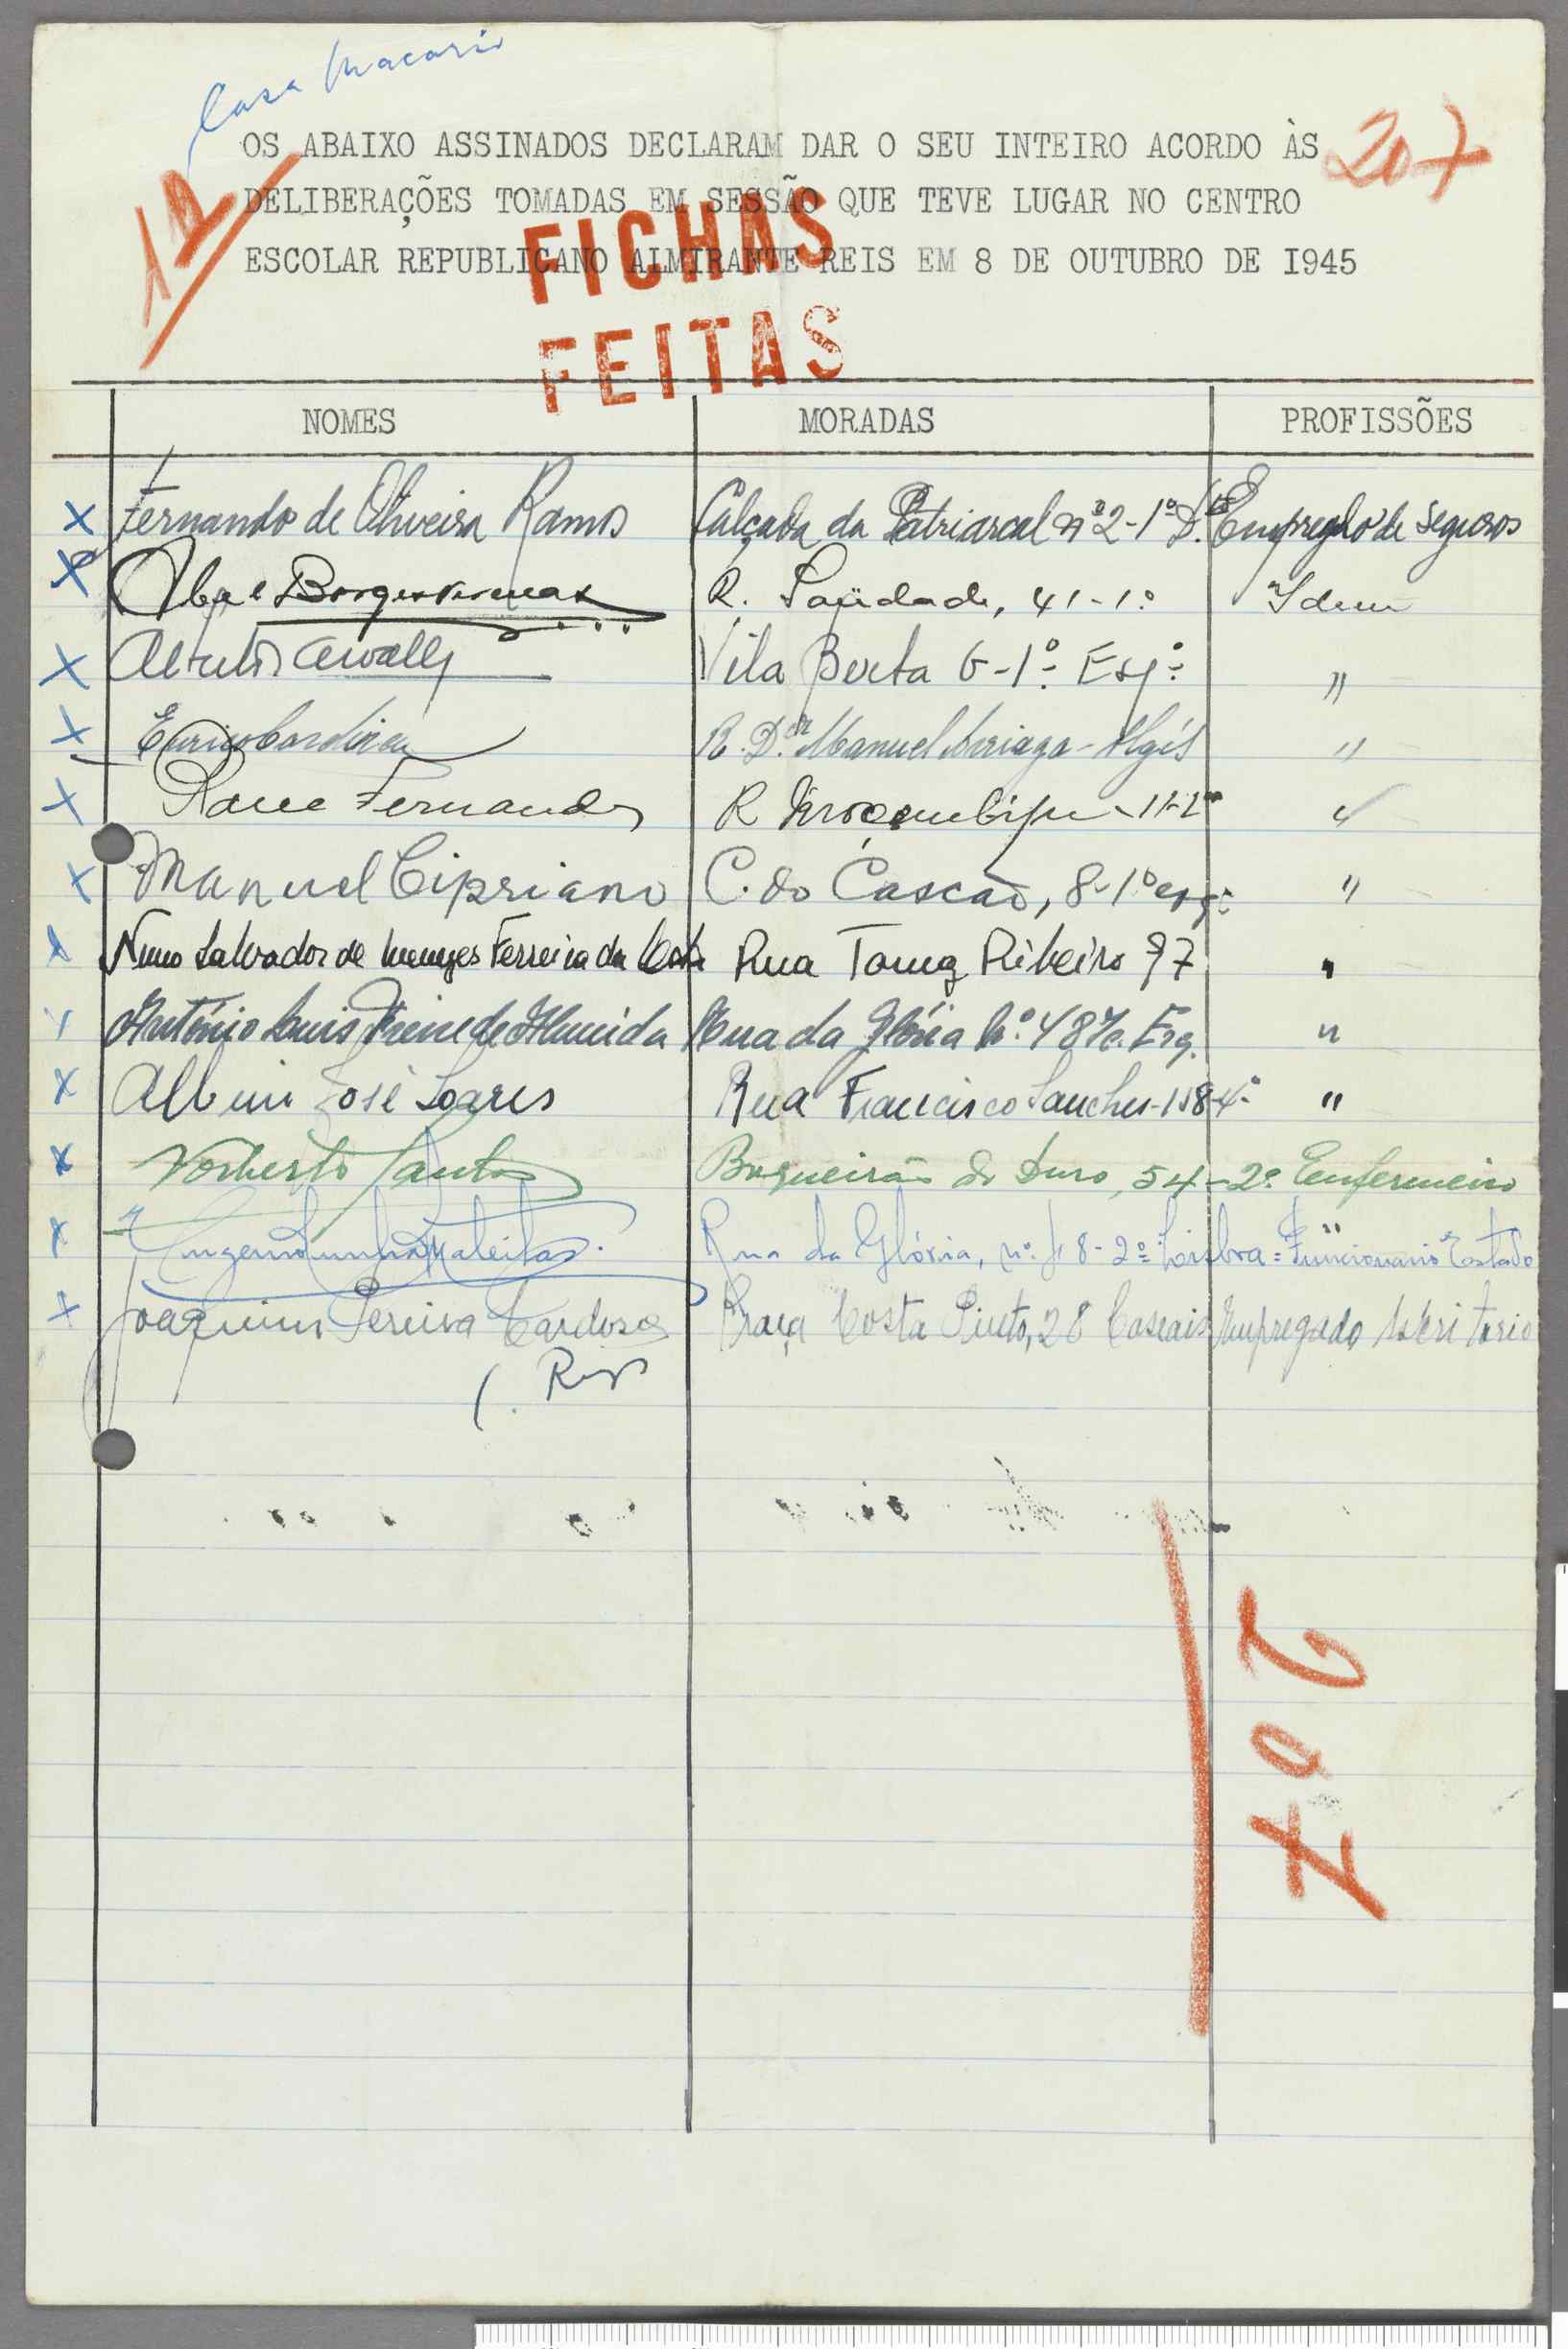 Casa Macario
OS ABAIXO ASSINADOS DECLARAM DAR O SEU INTEIRO ACORDO ÀS
207
DELIBERAÇÕES TOMADAS EM SESSÃO QUE TEVE LUGAR NO CENTRO
ESCOLAR REPUBLICANO ALMIRANTE REIS EM 8 DE OUTUBRO DE 1945
FICHAS
FEITAS
NOMES MORADAS PROFISSÕES
X Fernando de Oliveira Ramos Calçada da Patriarcal nº 2-1º D.to Empregdo de Seguros
X Abel Borges R. Saüdade, 41-1º Idem
X Vila Berta 6-1º Esqº "
X Eurico Cardoso R. D.or Manuel Arriaga - Algés "
X Fernandes R Moçambique - 11-2º "
X Manuel Cipriano C. do Cascão, 8-1º esqº "
X Nuno Salvador de Menezes Ferreira da Costa Rua Tomaz Ribeiro 97 "
X António Luis Freire de Almeida Rua da Glória Nº 48 Esq. "
X Albino José Soares Rua Francisco Sanches-158-4º "
X Norberto Santos Boqueirão do Duro, 54-2º Enfermeiro
X Rua da Glória, nº 48-2º Lisboa = Funcionario Estado
X Joaquim Pereira Cardoso Praça Costa Pinto, 28 Cascais Empregado Escritorio
207